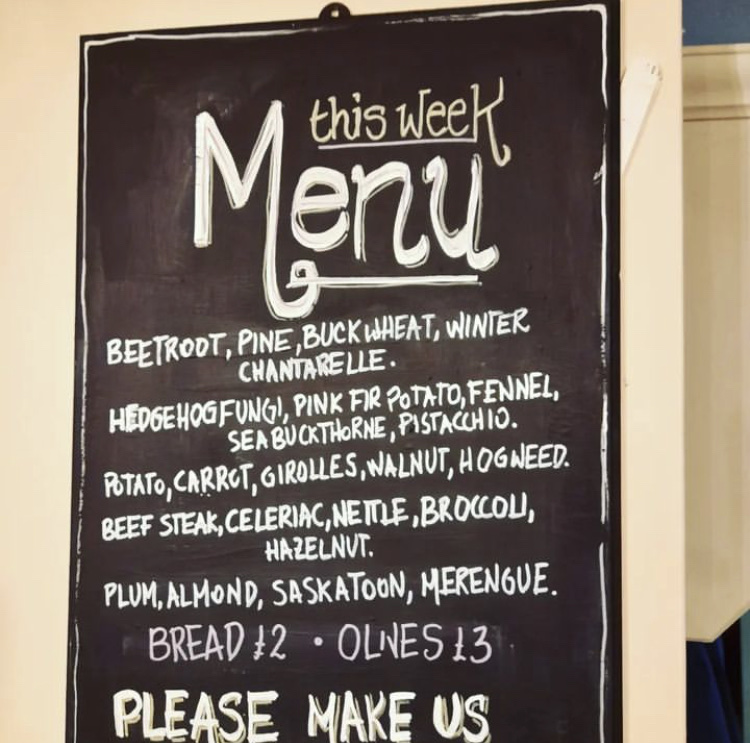 this week
Menu
BEETROOT, PINE, BUCKWHEAT, WINTER
CHANTARELLE.
HEDGEHOG FUNGI, PINK FIR POTATO, FENNEL,
SEA BUCKTHORNE, PISTACCHIO.
POTATO, CARROT, GIROLLES, WALNUT, HOGWEED.
BEEF STEAK, CELERIAC, NETTLE, BROCCOLI,
HAZELNUT.
PLUM, ALMOND, SASKATOON, MERENGUE.
BREAD £2 • OLIVES £3
PLEASE MAKE US